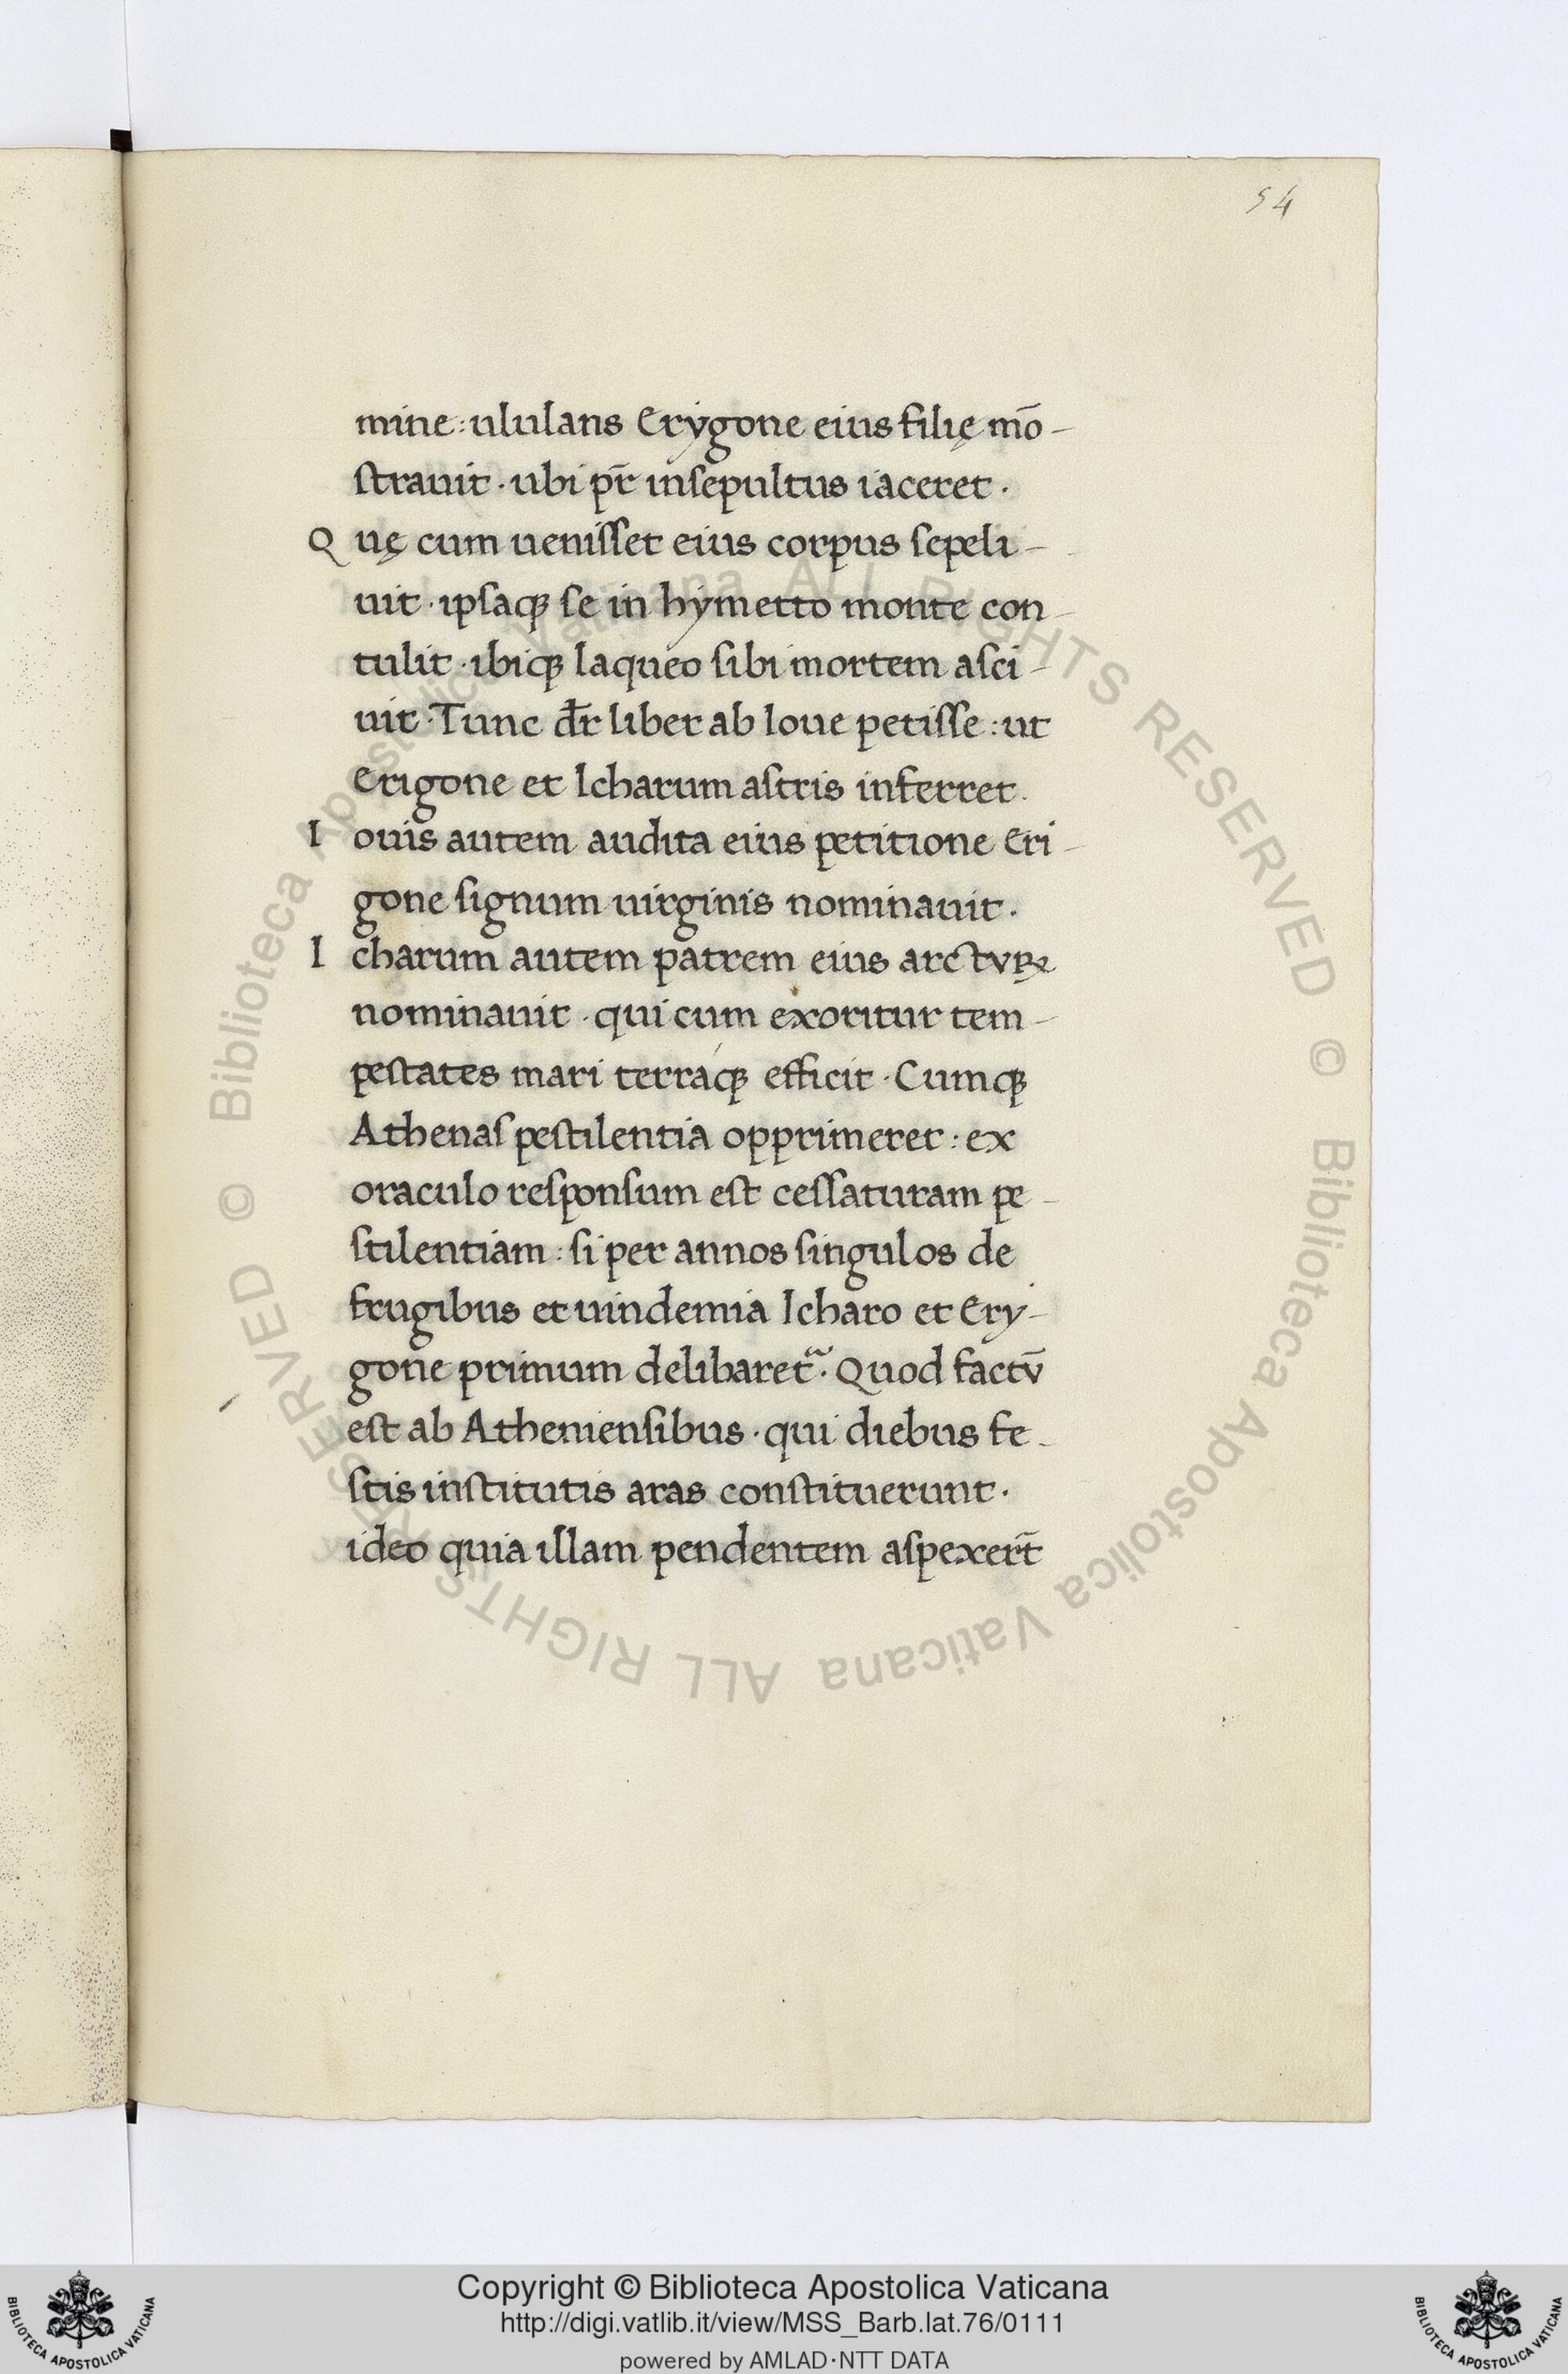 54
mine : ululans Erẏgone eius filię mō-
strauit · ubi pr̄ insepultus iaceret ·
Q uę cum uenisset eius corpus sepeli-
uit · ipsaqꝫ se in hẏmetto monte con-
tulit · ibiqꝫ laqueo sibi mortem asci-
uit · Tunc dr̄ liber ab Ioue petisse : ut
Erigone et Icharum astris inferret.
I ouis autem audita eius petitione Eri-
gone signum uirginis nominauit ·
I charum autem patrem eius arcTVRꝫ
nominauit · qui cum exoritur tem-
pestates mari terraqꝫ efficit · Cumqꝫ
Athenas pestilentia opprimeret : ex
oraculo responsum est cessaturam pe-
stilentiam : si per annos singulos de
frugibus et uindemia Icharo et Ery-
gone primum delibaretᷓ · Quod factv̄
est ab Atheniensibus · qui diebus fe-
stis institutis aras constituerunt ·
ideo quia illam pendentem aspexerт̄
© Biblioteca Apostolica Vaticana ALL RIGHTS RESERVED © Biblioteca Apostolica Vaticana ALL RIGHTS RESERVED
Copyright © Biblioteca Apostolica Vaticana
http://digi.vatlib.it/view/MSS_Barb.lat.76/0111
powered by AMLAD·NTT DATA
BIBLIOTECA APOSTOLICA VATICANA
BIBLIOTECA APOSTOLICA VATICANA